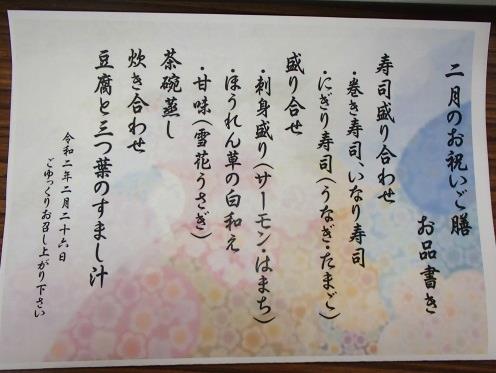 二月のお祝いご膳
お品書き
寿司盛り合わせ
・巻き寿司、いなり寿司
・にぎり寿司(うなぎ・たまご)
盛り合せ
・刺身盛り(サーモン・はまち)
・ほうれん草の白和え
・甘味(雪花うさぎ)
茶碗蒸し
炊き合わせ
豆腐と三つ葉のすまし汁
令和二年二月二十六日
ごゆっくりお召し上がり下さい